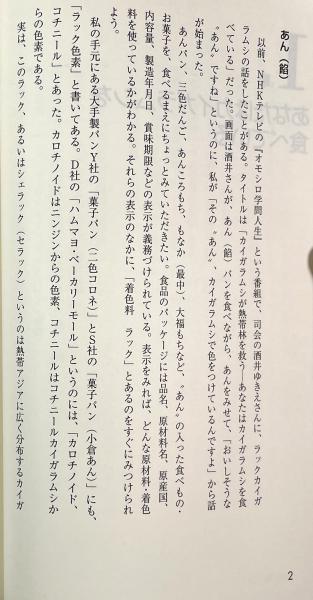 あん(餡)
以前、NHKテレビの「オモシロ学問人生」という番組で、司会の酒井ゆきえさんに、ラックカイガ
ラムシの話をしたことがある。タイトルは「カイガラムシが熱帯林を救う―あなたはカイガラムシを食
べている」だった。画面は酒井さんが、あん(餡)パンを食べながら、あんをみせて、「おいしそうな
〝あん〟ですね」というのに、私が「その〝あん〟、カイガラムシで色をつけているんですよ」から話
が始まった。
あんパン、三色だんご、あんころもち、もなか(最中)、大福もちなど、〝あん〟の入った食べもの・
お菓子を、食べるまえにちょっとみていただきたい。食品のパッケージには品名、原材料名、原産国、
内容量、製造年月日、賞味期限などの表示が義務づけられている。表示をみれば、どんな原材料・着色
料を使っているかがわかる。それらの表示のなかに、「着色料 ラック」とあるのをすぐにみつけられ
よう。
私の手元にある大手製パンY社の「菓子パン(二色コロネ)」とS社の「菓子パン(小倉あん)」にも、
「ラック色素」と書いてある。D社の「ハムマヨ・ベーカリーモール」というのには、「カロチノイド、
コチニール」とあった。カロチノイドはニンジンからの色素、コチニールはコチニールカイガラムシか
らの色素である。
実は、このラック、あるいはシェラック(セラック)というのは熱帯アジアに広く分布するカイガ
2